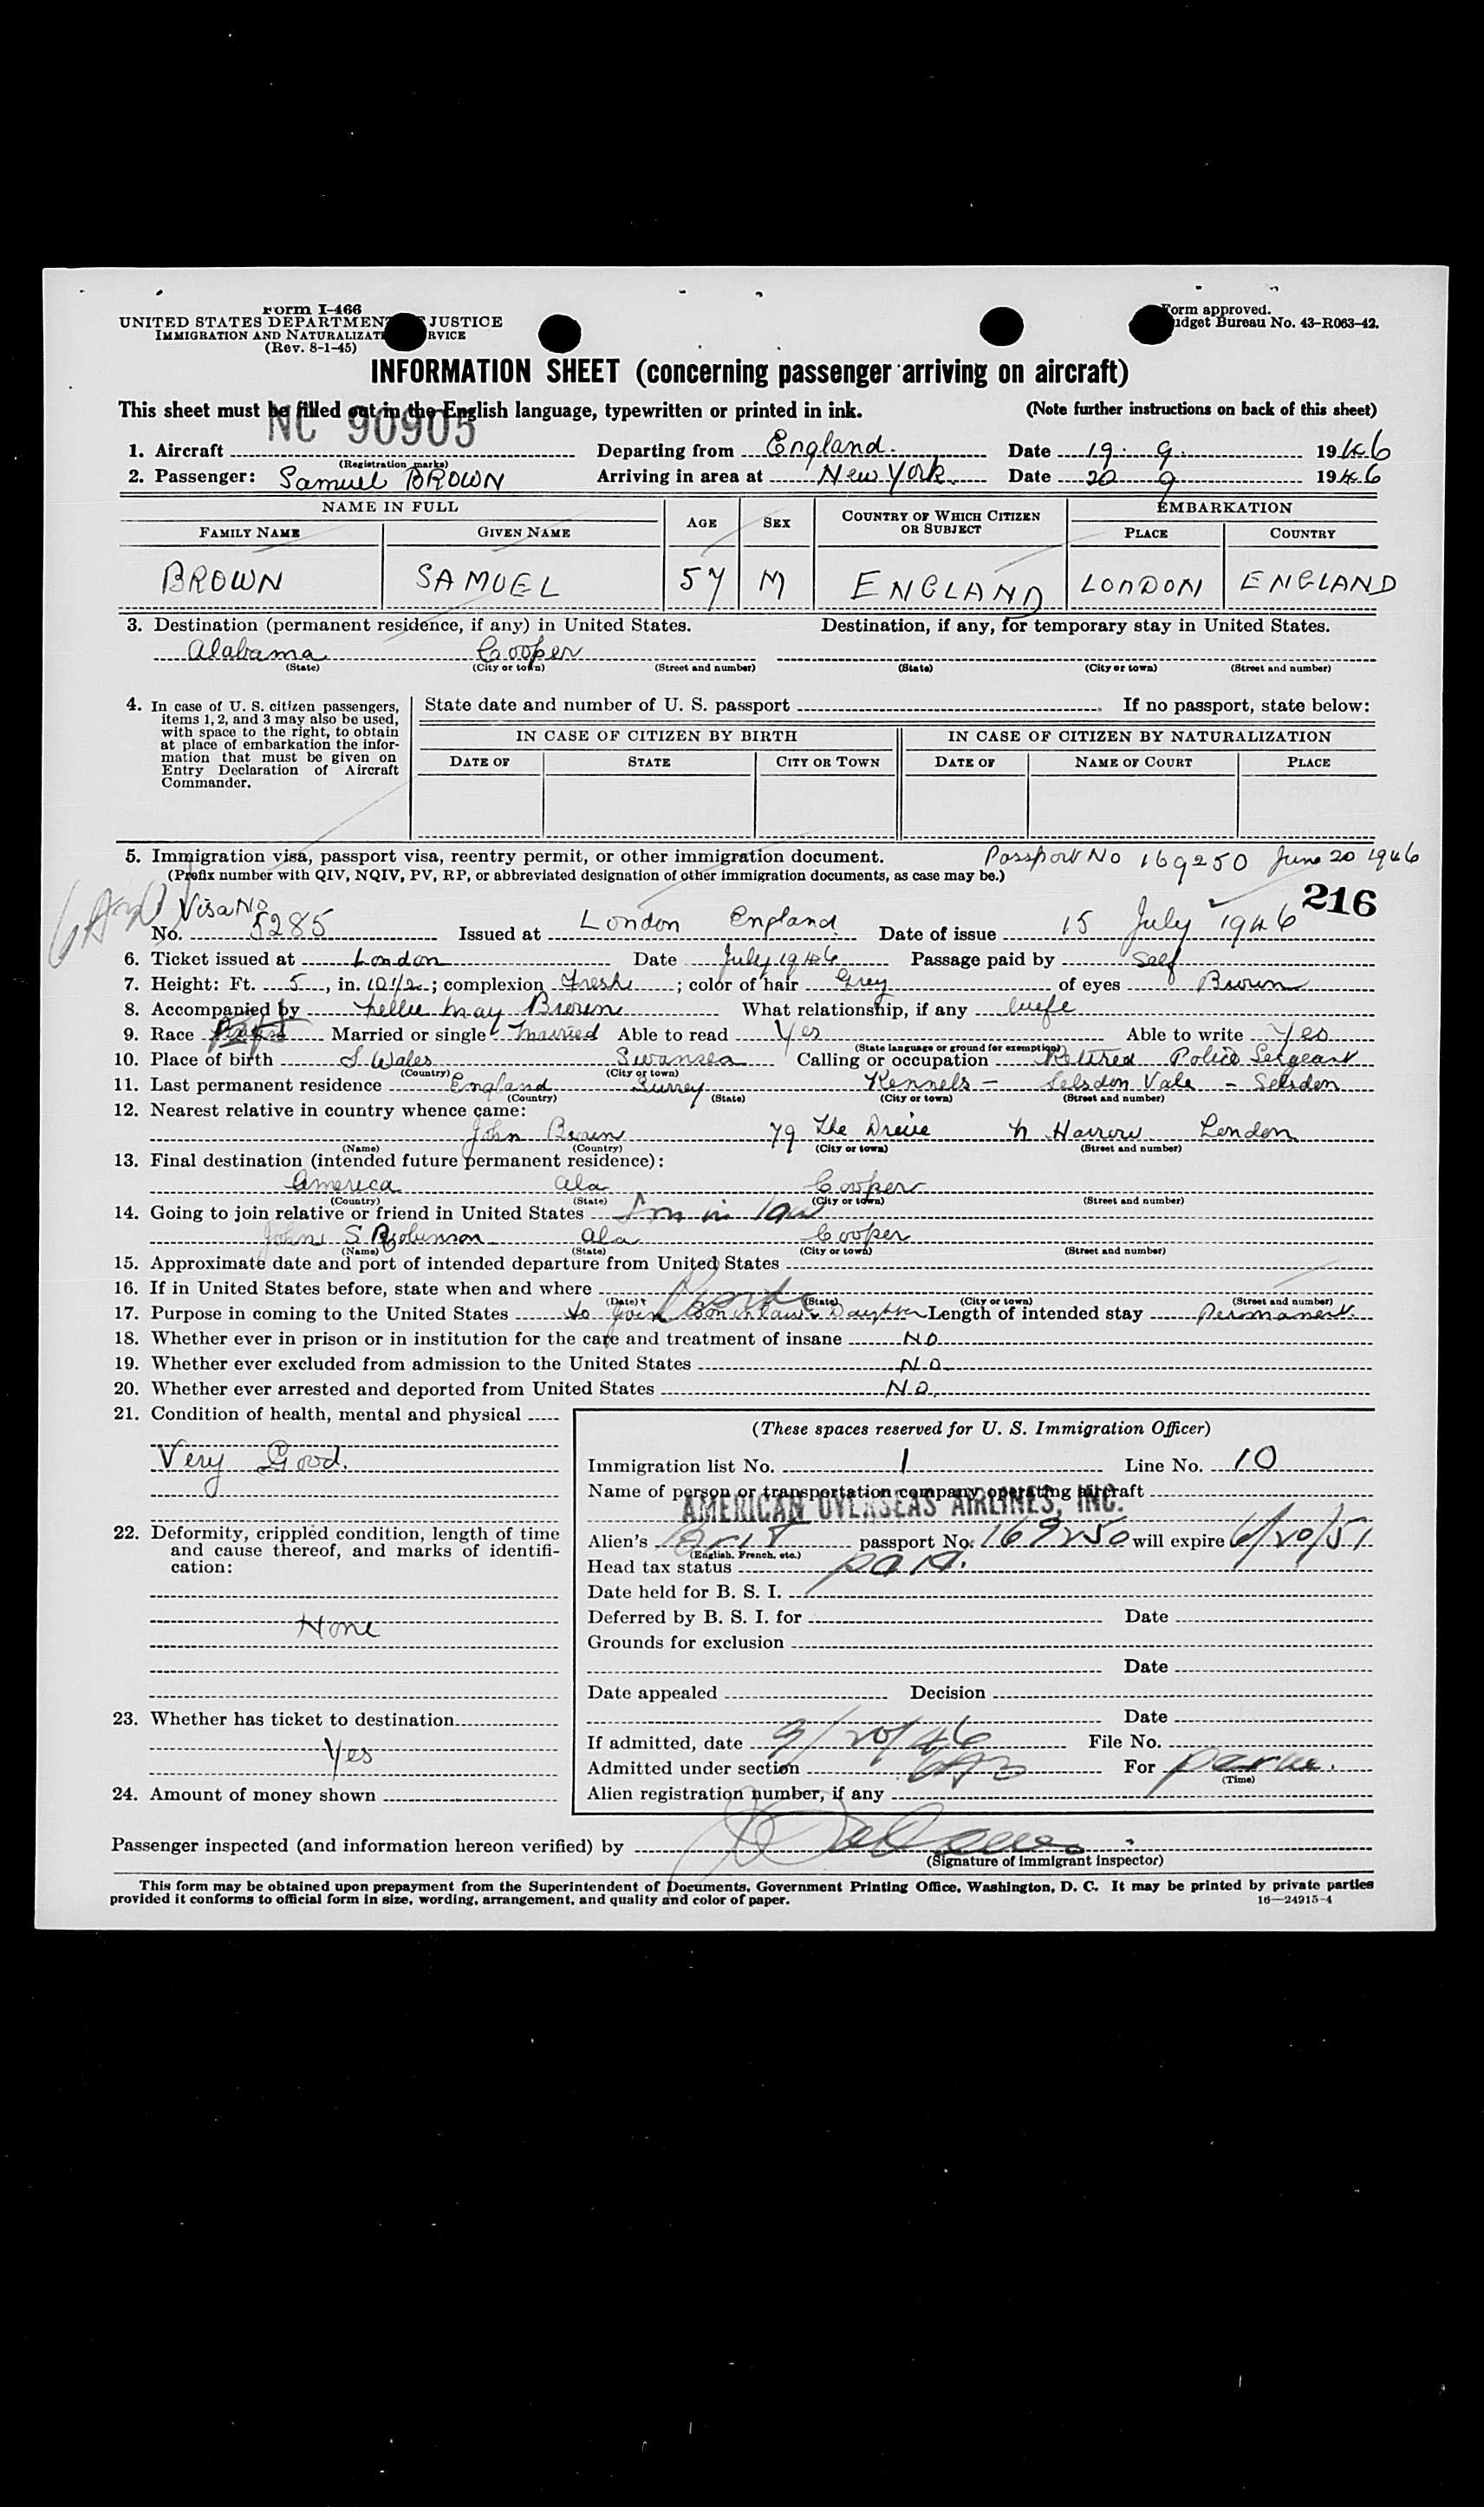 Form I-466
UNITED STATES DEPARTMENT OF JUSTICE
IMMIGRATION AND NATURALIZATION SERVICE
(Rev. 8-1-45)
Form approved.
Budget Bureau No. 43-R063-42.
INFORMATION SHEET (concerning passenger arriving on aircraft)
This sheet must be filled out in the English language, typewritten or printed in ink. (Note further instructions on back of this sheet)
NC 90905
1. Aircraft Departing from England. Date 19. 9. 1946
(Registration marks)
2. Passenger: Samuel BROWN Arriving in area at New York. Date 20 9 1946
NAME IN FULL AGE SEX COUNTRY OF WHICH CITIZEN OR SUBJECT EMBARKATION
FAMILY NAME GIVEN NAME PLACE COUNTRY
BROWN SAMUEL 57 M ENGLAND LONDON ENGLAND
3. Destination (permanent residence, if any) in United States. Destination, if any, for temporary stay in United States.
Alabama Cooper
(State) (City or town) (Street and number) (State) (City or town) (Street and number)
4. In case of U. S. citizen passengers, items 1, 2, and 3 may also be used, with space to the right, to obtain at place of embarkation the information that must be given on Entry Declaration of Aircraft Commander.
State date and number of U. S. passport . If no passport, state below:
IN CASE OF CITIZEN BY BIRTH IN CASE OF CITIZEN BY NATURALIZATION
DATE OF STATE CITY OR TOWN DATE OF NAME OF COURT PLACE
5. Immigration visa, passport visa, reentry permit, or other immigration document. Passport No 169250 June 20 1946
(Prefix number with QIV, NQIV, PV, RP, or abbreviated designation of other immigration documents, as case may be.)
216
Visa No
No. 5285 Issued at London England Date of issue 15 July 1946
6. Ticket issued at London Date July 1946 Passage paid by Self
7. Height: Ft. 5, in. 10 1/2; complexion Fresh; color of hair Grey of eyes Brown
8. Accompanied by Nellie May Brown What relationship, if any Wife
9. Race Married or single Married Able to read Yes Able to write Yes
(State language or ground for exemption)
10. Place of birth S Wales Swansea Calling or occupation Retired Police Sergeant
(Country) (City or town)
11. Last permanent residence England Surrey Kennels - Selsdon Vale - Selsdon
(Country) (State) (City or town) (Street and number)
12. Nearest relative in country whence came:
John Brown 79 The Drive N Harrow London
(Name) (Country) (City or town) (Street and number)
13. Final destination (intended future permanent residence):
America Ala Cooper
(Country) (State) (City or town) (Street and number)
14. Going to join relative or friend in United States Son in law
John S Robinson Ala Cooper
(Name) (State) (City or town) (Street and number)
15. Approximate date and port of intended departure from United States
16. If in United States before, state when and where
(Date) (State) (City or town) (Street and number)
17. Purpose in coming to the United States to join Son in law & Daughter Length of intended stay Permanent.
18. Whether ever in prison or in institution for the care and treatment of insane No
19. Whether ever excluded from admission to the United States No
20. Whether ever arrested and deported from United States No.
21. Condition of health, mental and physical
Very Good.
22. Deformity, crippled condition, length of time and cause thereof, and marks of identification:
None
23. Whether has ticket to destination
Yes
24. Amount of money shown
(These spaces reserved for U. S. Immigration Officer)
Immigration list No. 1 Line No. 10
Name of person or transportation company operating aircraft
AMERICAN OVERSEAS AIRLINES, INC.
Alien's Brit passport No. 169250 will expire 6/20/51
(English, French, etc.)
Head tax status paid.
Date held for B. S. I.
Deferred by B. S. I. for Date
Grounds for exclusion
Date
Date appealed Decision
Date
If admitted, date 9/20/46 File No.
Admitted under section For perm.
(Time)
Alien registration number, if any
Passenger inspected (and information hereon verified) by
(Signature of immigrant inspector)
This form may be obtained upon prepayment from the Superintendent of Documents, Government Printing Office, Washington, D. C. It may be printed by private parties
provided it conforms to official form in size, wording, arrangement, and quality and color of paper. 16—24915-4